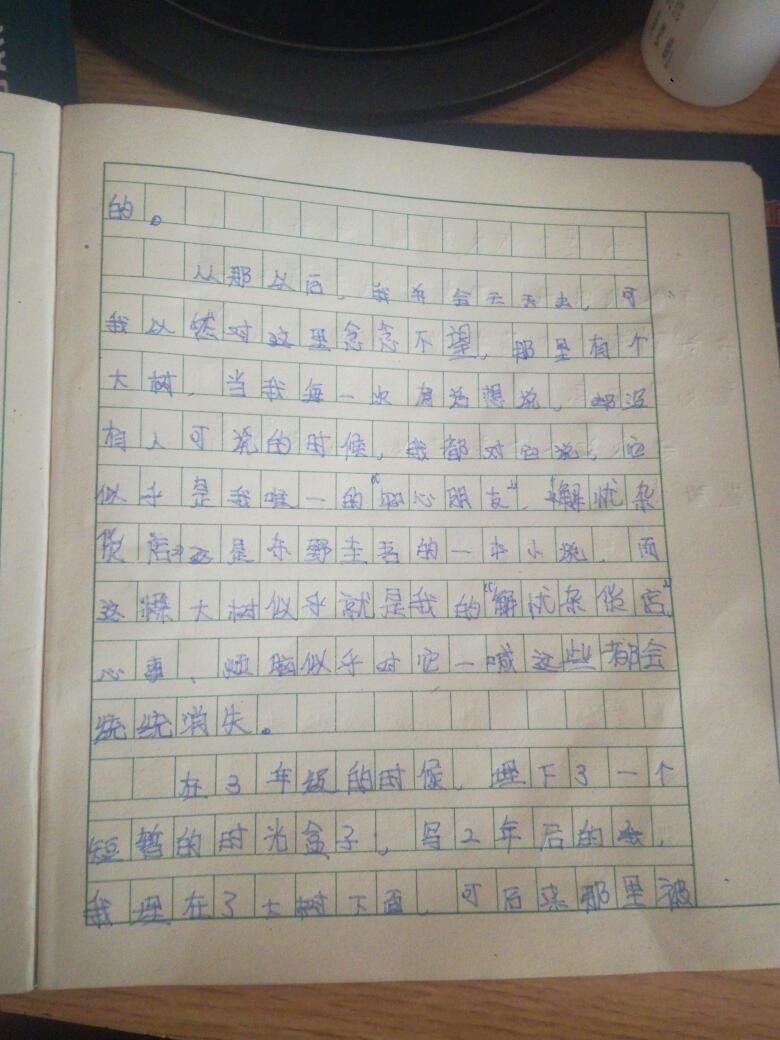 的。
从那以后，我不会天天去，可
我以然对这里念念不望，那里有个
大树，当我每一次有话想说，却没
有人可说的时候，我都对它说，它
似乎是我唯一的“知心朋友”，《解忧杂
货店》这是东野圭吾的一本小说，而
这棵大树似乎就是我的“解忧杂货店”
心事、烦脑似乎对它一喊这些都会
统统消失。
在3年级的时候，埋下了一个
短暂的时光盒子，写2年后的
我埋在了大树下面，可后来那里被